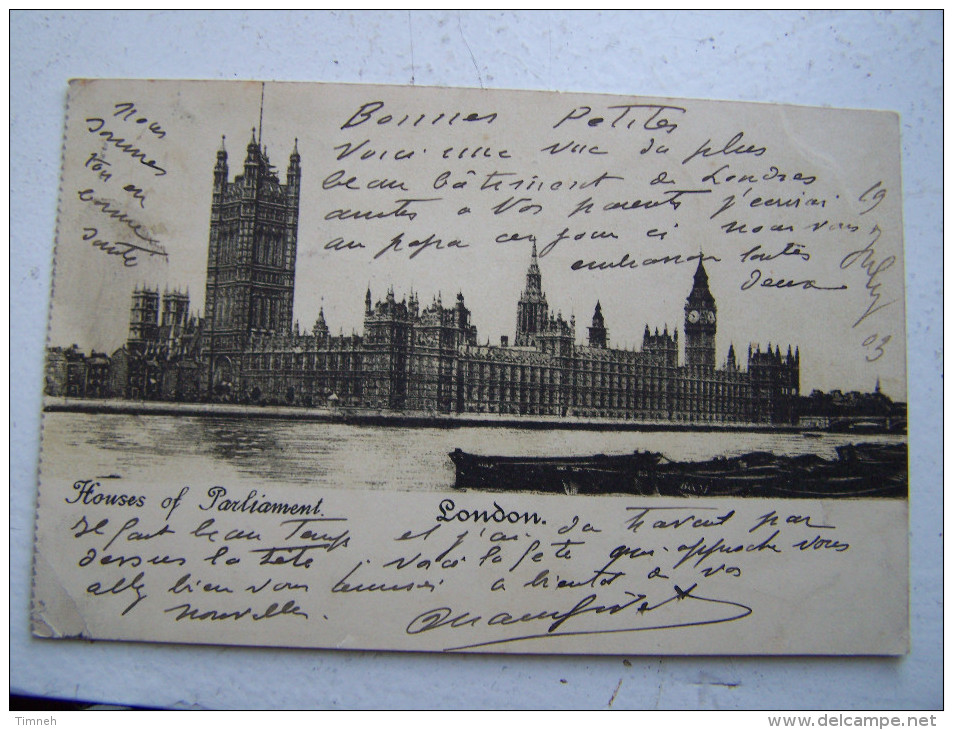 Bonnes Petites
Voici une vue du plus
beau bâtiment de Londres
dites a vos parents j'écrirai
au papa ces jour ci nous vous
embrassons toutes
deux
nous
sommes
tou en
bonne
santé
19
July
03
Houses of Parliament. London.
Il fait beau Temp et j'ai du travail par
dessus la tête. voici la fete qui approche vous
allez bien vous amuser a bientot de vos
nouvelles.
Timneh
www.delcampe.net